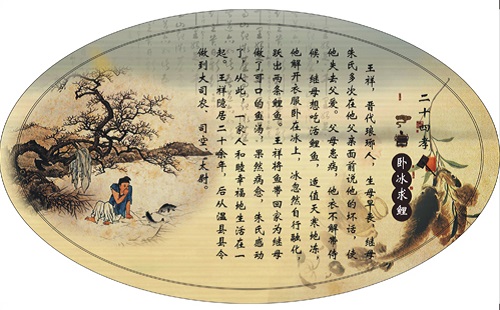 二十四孝
卧冰求鲤
王祥，晋代琅琊人，生母早丧，继母
朱氏多次在他父亲面前说他的坏话，使
他失去父爱。父母患病，他衣不解带侍
候，继母想吃活鲤鱼，适值天寒地冻，
他解开衣服卧在冰上，冰忽然自行融化，
跃出两条鲤鱼。王祥将鱼带回家为继母
做了可口的鱼汤，果然病愈，朱氏感动
了，从此，一家人和睦幸福地生活在一
起。王祥隐居二十余年，后从温县县令
做到大司农、司空、太尉。